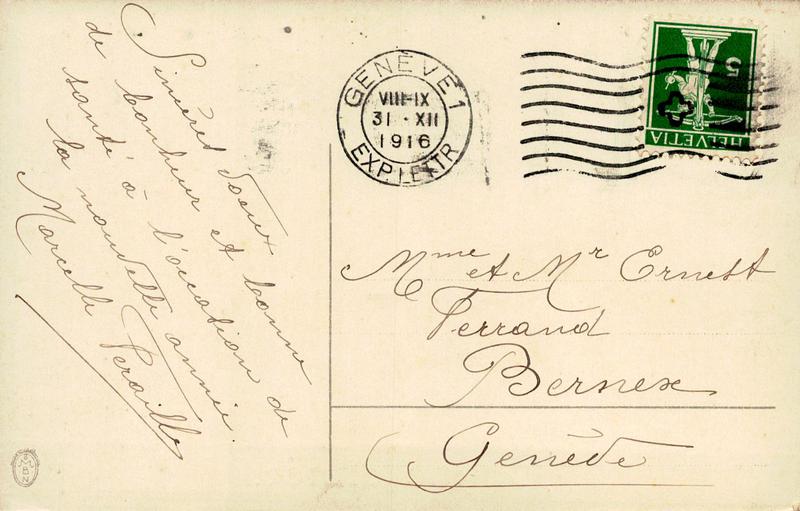 Sincères vœux
de bonheur et bonne
santé à l'occasion de
la nouvelle année.
Marcelle
GENÈVE 1
VIII-IX
31 · XII
1916
EXP. LETTR
5
HELVETIA
Mme et Mr Ernest
Ferrand
Bernex
Genève